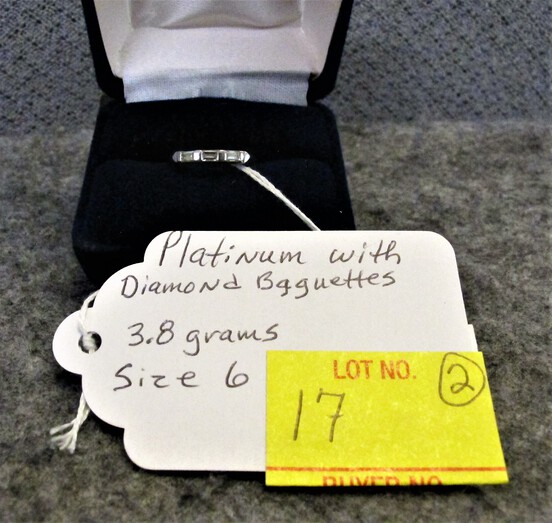 Platinum with
Diamond Baguettes
3.8 grams
Size 6
LOT NO. 2
17
BUYER NO.